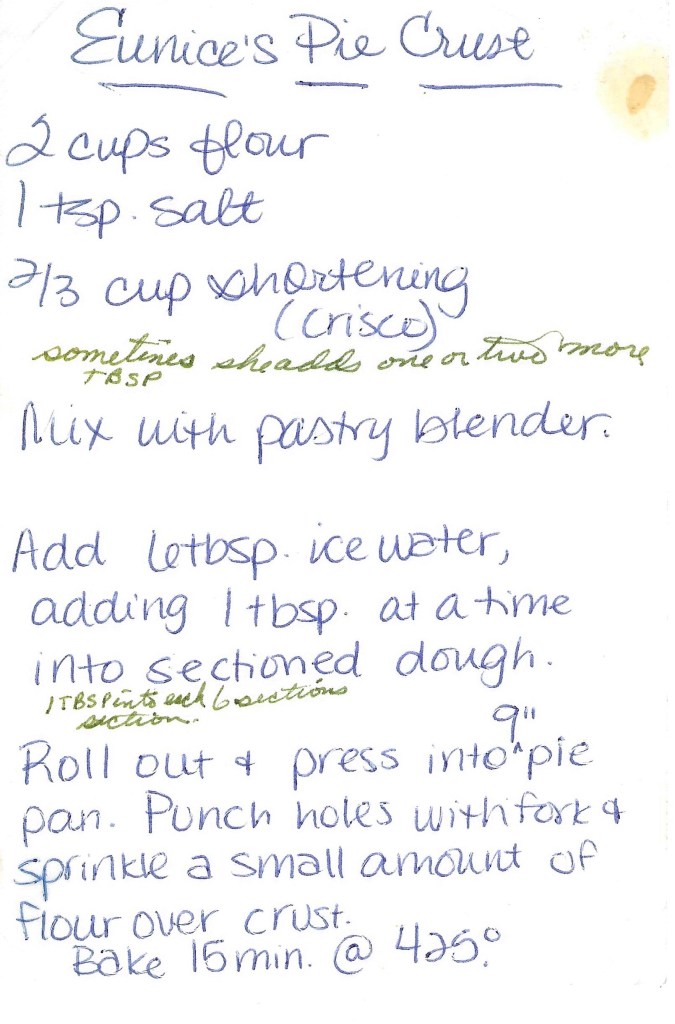 Eunice's Pie Crust
2 cups flour
1 tsp. salt
2/3 cup shortening
(Crisco)
sometimes she adds one or two more
TBSP
Mix with pastry blender.
Add 6 tbsp. ice water,
adding 1 tbsp. at a time
into sectioned dough.
1 TBSP into each 6 sections
section.
9"
Roll out & press into ^ pie
pan. Punch holes with fork &
sprinkle a small amount of
flour over crust.
Bake 15 min. @ 425°.